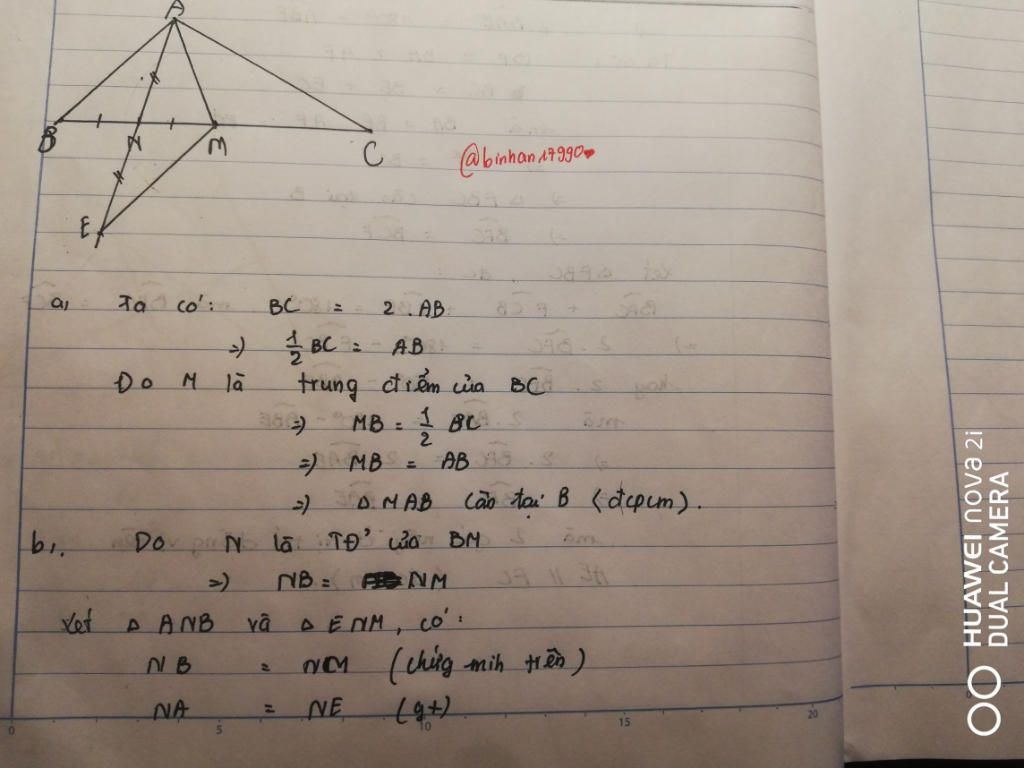 A
B
N
M
C
E
@binhan17990
a, Ta có: BC = 2.AB
=) 1/2 BC = AB
Do M là trung điểm của BC
=) MB = 1/2 BC
=) MB = AB
=) Δ MAB cân tại B (đcpcm).
b, Do N là TĐ' của BM
=) NB = NM
Xét Δ ANB và Δ ENM, có:
NB = NM (chứg mih trên)
NA = NE (gt)
0 5 10 15 20
HUAWEI nova 2i
DUAL CAMERA